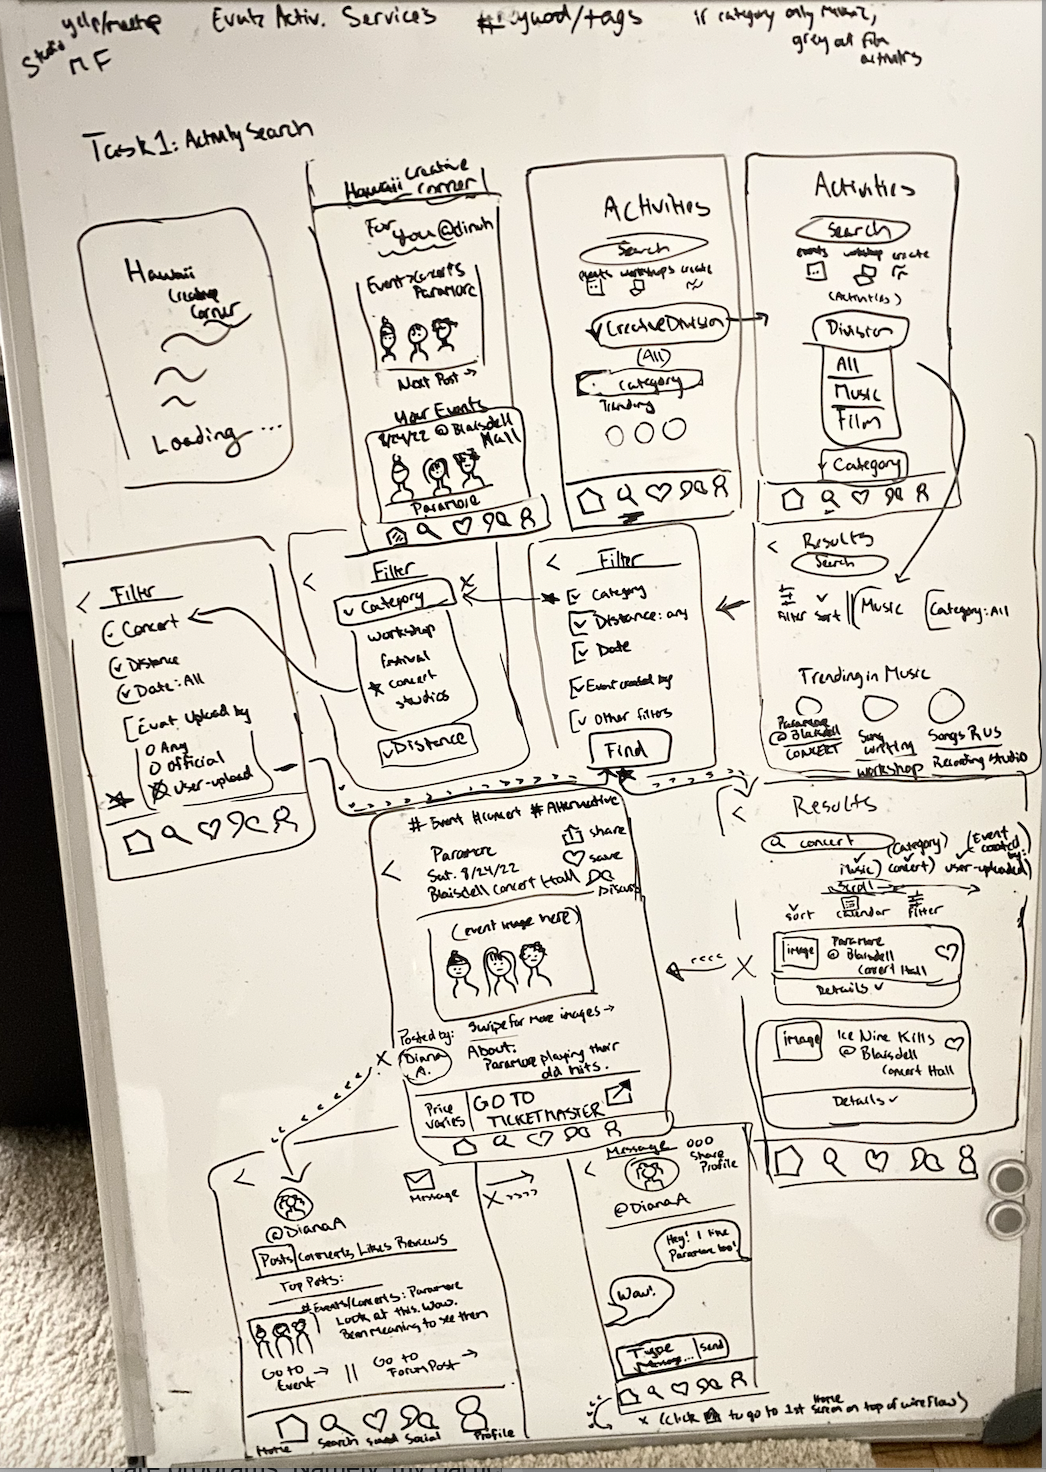 yelp/meetup
Studio
MF
Event Activ. Services
/tags
if category only music,
grey out film
activities
Task 1: Activity Search
Hawaii
Creative
Corner
Loading ...
Hawaii Creative
Corner
For
you @dinah
Events>Concerts
Paramore
Next Post →
Your Events
8/24/22 @ Blaisdell
Hall
Paramore
Activities
Search
events workshops create
Creative Division
(All)
Category
Trending
Activities
Search
events workshop create
(Activities)
Division
All
Music
Film
Category
< Filter
Concert
Distance
Date: All
Event Upload by
Any
Official
User-upload
< Filter
Category
x
workshop
festival
concert
studios
Distance
< Filter
Category
Distance: any
Date
Event created by
Other filters
Find
< Results
Search
Filter Sort || Music Category: All
Trending in Music
Paramore
@ Blaisdell
CONCERT
Song
writing
workshop
Songs R US
Recording Studio
# Event #concert # Alternative
<
Paramore
Sat. 8/24/22
Blaisdell Concert Hall
share
save
Discuss
(event image here)
Swipe for more images →
Posted by:
Diana
A.
About:
Paramore playing their
old hits.
Price
varies
GO TO
TICKETMASTER
X
< Results
concert
(Category) (Event
created
by:
Music) concert) user-uploaded)
Scroll
sort calendar filter
image
Paramore
@ Blaisdell
Concert Hall
Details
X
image
Ice Nine Kills
@ Blaisdell
Concert Hall
Details
<
Message
@DianaA
Posts Comments Likes Reviews
Top Posts:
# Events/Concerts: Paramore
Look at this. Wow.
Been meaning to see them
Go to
Event →
||
Go to
Forum Post →
Home Search saved Social Profile
X >>>>
< Message ooo
Share
Profile
@DianaA
Hey! I like
Paramore too!
Wow!
Type
message...
send
x (click to go to 1st Home Screen on top of wireflow)